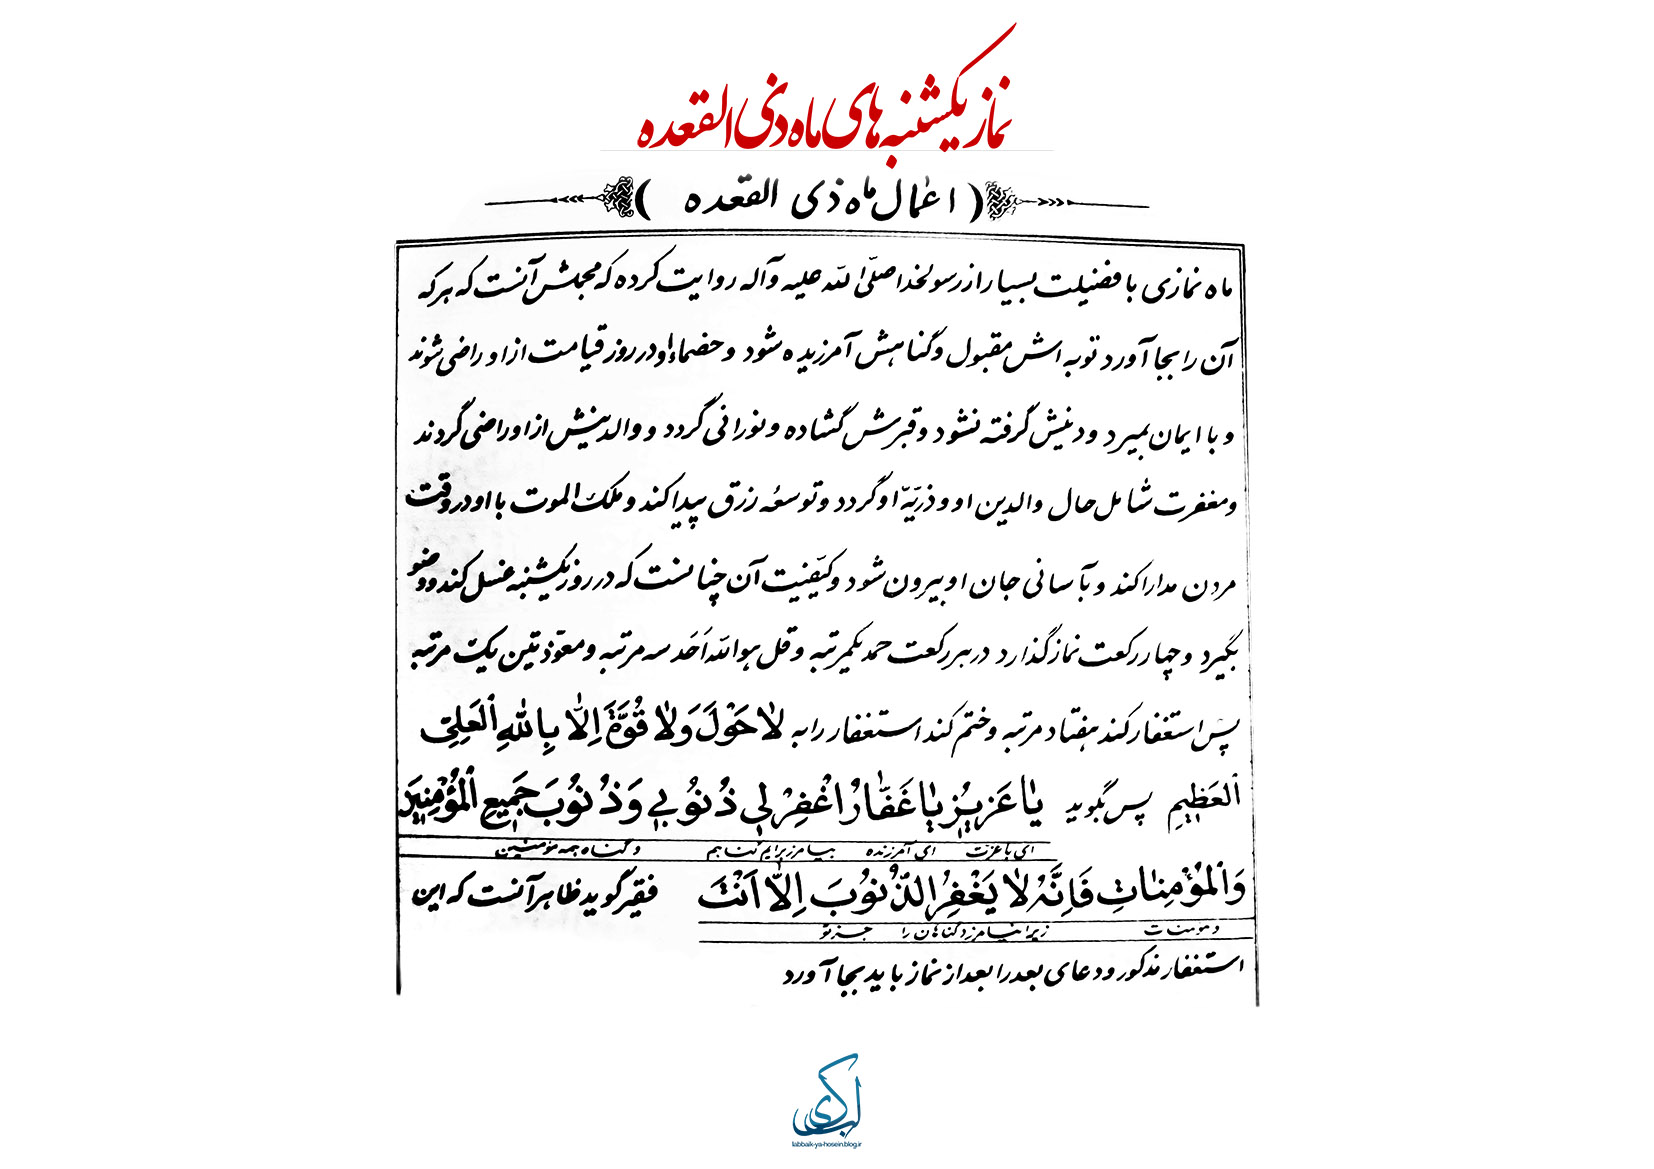 نماز یکشنبه های ماه ذی القعده
( اعمال ماه ذی القعده )
ماه نمازی با فضیلت بسیار از رسولخدا صلّی اللّه علیه وآله روایت کرده که مجملش آنست که هر که
آن را بجا آورد توبه اش مقبول و گناهش آمرزیده شود و خصماء او در روز قیامت از او راضی شوند
و با ایمان بمیرد و دینش گرفته نشود و قبرش گشاده و نورانی گردد و والدینش از او راضی گردند
و مغفرت شامل حال والدین او و ذریّهٔ او گردد و توسعهٔ رزق پیدا کند و ملک الموت با او در وقت
مردن مدارا کند و بآسانی جان او بیرون شود و کیفیّت آن چنانست که در روز یکشنبه غسل کند و وضو
بگیرد و چهار رکعت نماز گذارد در هر رکعت حمد یکمرتبه و قل هو اللّه اَحَد سه مرتبه و معوّذتین یک مرتبه
پس استغفار کند هفتاد مرتبه و ختم کند استغفار را به لاٰ حَوْلَ وَلاٰ قُوَّةَ اِلاّٰ بِاللّٰهِ الْعَلِیِّ
الْعَظٖیمِ پس بگوید یٰا عَزٖیزُ یٰا غَفّٰارُ اغْفِرْ لٖی ذُنُوبٖی وَذُنُوبَ جَمٖیعِ الْمُؤْمِنٖینَ
ای با عزت ای آمرزنده بیامرز برایم گناهم و گناه همه مؤمنین
وَالْمُؤْمِنٰاتِ فَاِنَّهُ لاٰ یَغْفِرُ الذُّنُوبَ اِلاّٰ اَنْتَ فقیر گوید ظاهر آنست که این
و مؤمنات زیرا نیامرزد گناهان را جز تو
استغفار مذکور و دعای بعد را بعد از نماز باید بجا آورد
لبیک
labbaik-ya-hosein.blog.ir